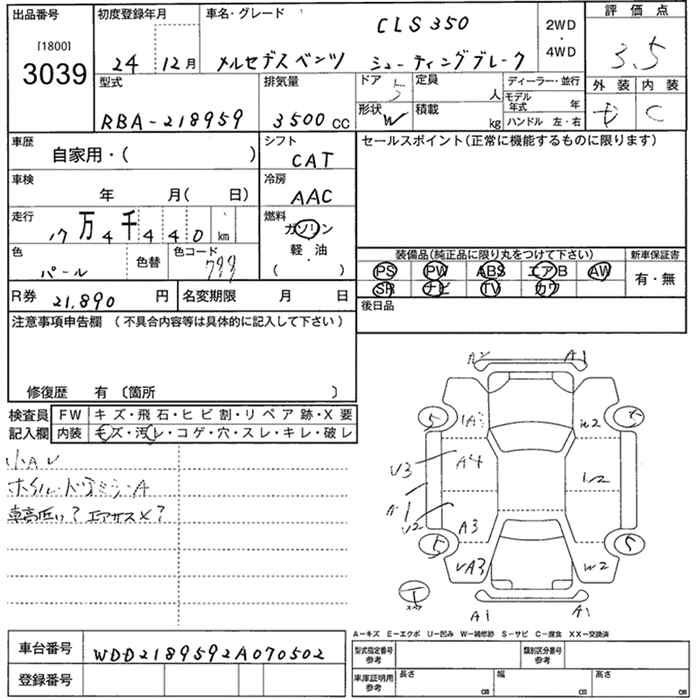 出品番号
[1800]
3039
初度登録年月
24 12月
車名・グレード
CLS350
メルセデスベンツ シューティングブレーク
2WD
・
4WD
評価点
3.5
外装 内装
C
型式
RBA-218959
排気量
3500 CC
ドア
5
形状
W
定員
人
積載
kg
ディーラー・並行
モデル年式 年
ハンドル 左・右
車歴
自家用・( )
シフト
CAT
セールスポイント(正常に機能するものに限ります)
車検
年 月( 日)
冷房
AAC
走行
17万4千440 km
燃料
ガソリン
軽・油
( )
色
パール
色替
色コード
799
装備品(純正品に限り丸をつけて下さい)
PS PW ABS エアB AW
SR ナビ TV カワ
新車保証書
有・無
R券 21,890 円
名変期限 月 日
後日品
注意事項申告欄 (不具合内容等は具体的に記入して下さい)
修復歴 有 〔箇所 〕
検査員記入欄
FW キズ・飛石・ヒビ割・リペア跡・X要
内装 キズ・汚レ・コゲ・穴・スレ・キレ・破レ
小AU
ホイル・ドアミラーA
車高低い? エアサス×?
A1
5
W2
U3
A4
A1
U2
A3
UA3
5
5
W2
A1
A1
A-キズ E-エクボ U-凹み W-補修跡 S-サビ C-腐食 XX-交換済
車台番号
WDD2189592A070502
登録番号
型式指定番号
参考
類別区分番号
参考
車庫証明用
参考
長さ cm
幅 cm
高さ cm